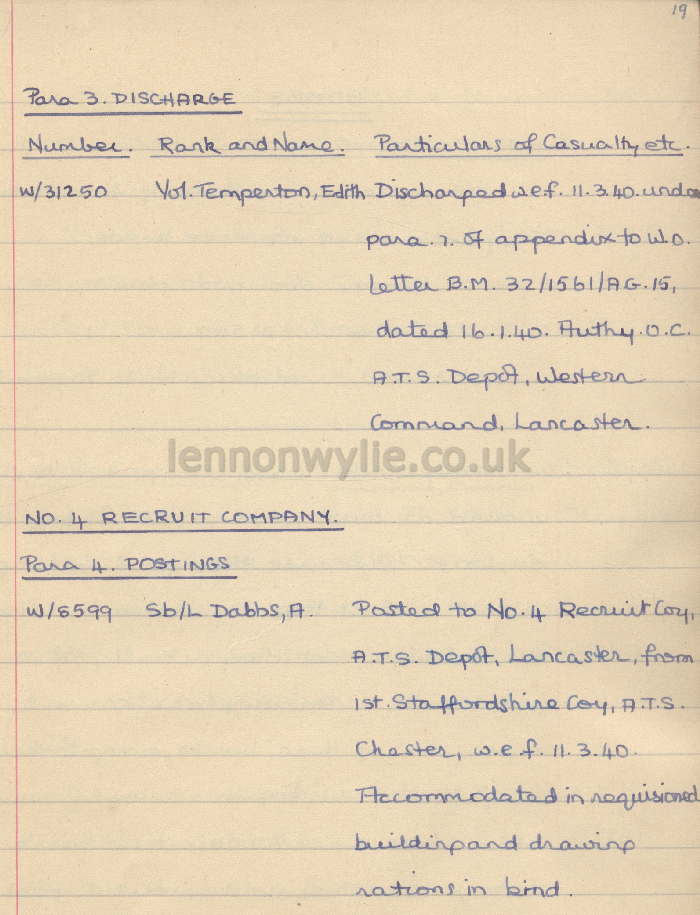 19
Para 3. DISCHARGE
Number. Rank and Name. Particulars of Casualty etc.
W/31250 Vol. Temperton, Edith Discharged w.e.f. 11.3.40. under
para. 2. of appendix to W.O.
Letter B.M. 32/1561/AG.15,
dated 16.1.40. Authy. O.C.
A.T.S. Depot, Western
Command, Lancaster.
lennonwylie.co.uk
NO. 4 RECRUIT COMPANY.
Para 4. POSTINGS
W/5599 Sb/L Dabbs, A. Posted to No. 4 Recruit Coy,
A.T.S. Depot, Lancaster, from
1st. Staffordshire Coy, A.T.S.
Chester, w.e.f. 11.3.40.
Accommodated in requisioned
building and drawing
rations in kind.